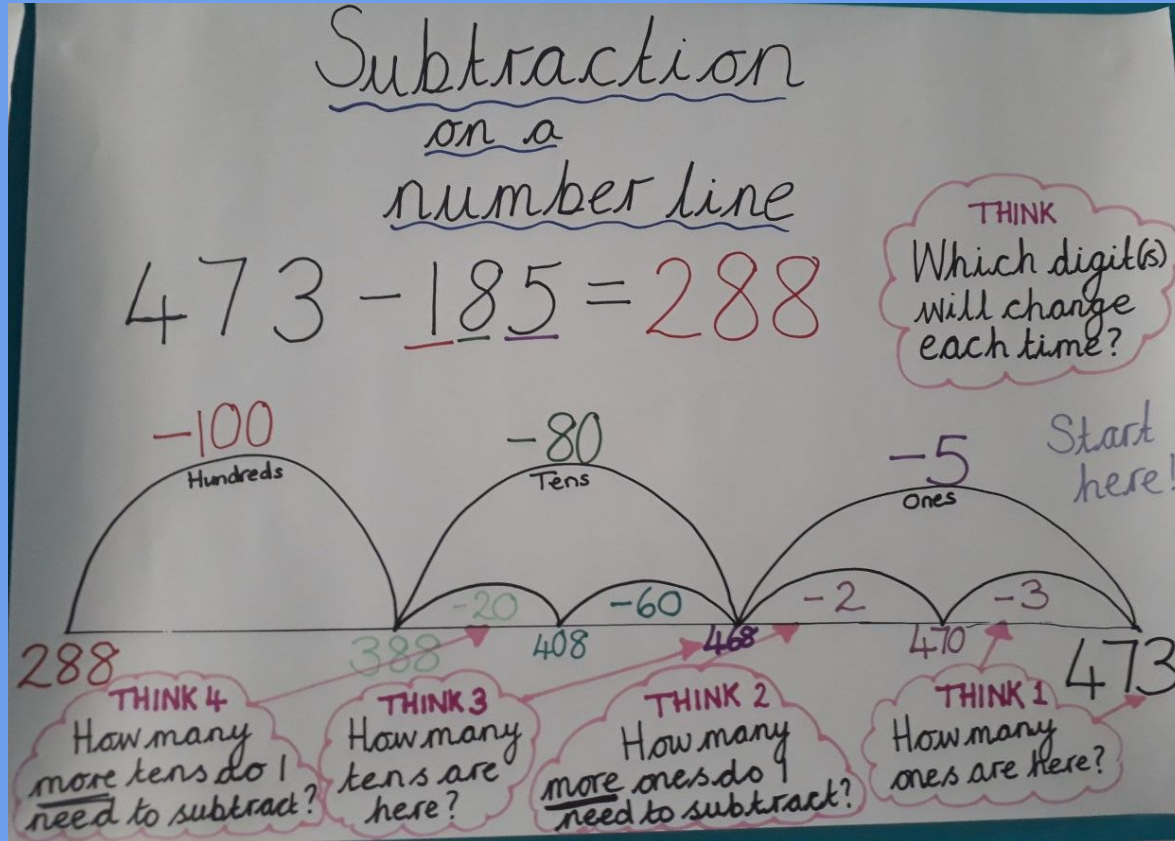 Subtraction
on a
number line
473 - 185 = 288
THINK
Which digit(s)
will change
each time?
Start
here!
-100
Hundreds
-80
Tens
-5
Ones
-20
-60
-2
-3
288
388
408
468
470
473
THINK 4
How many
more tens do I
need to subtract?
THINK 3
How many
tens are
here?
THINK 2
How many
more ones do I
need to subtract?
THINK 1
How many
ones are here?